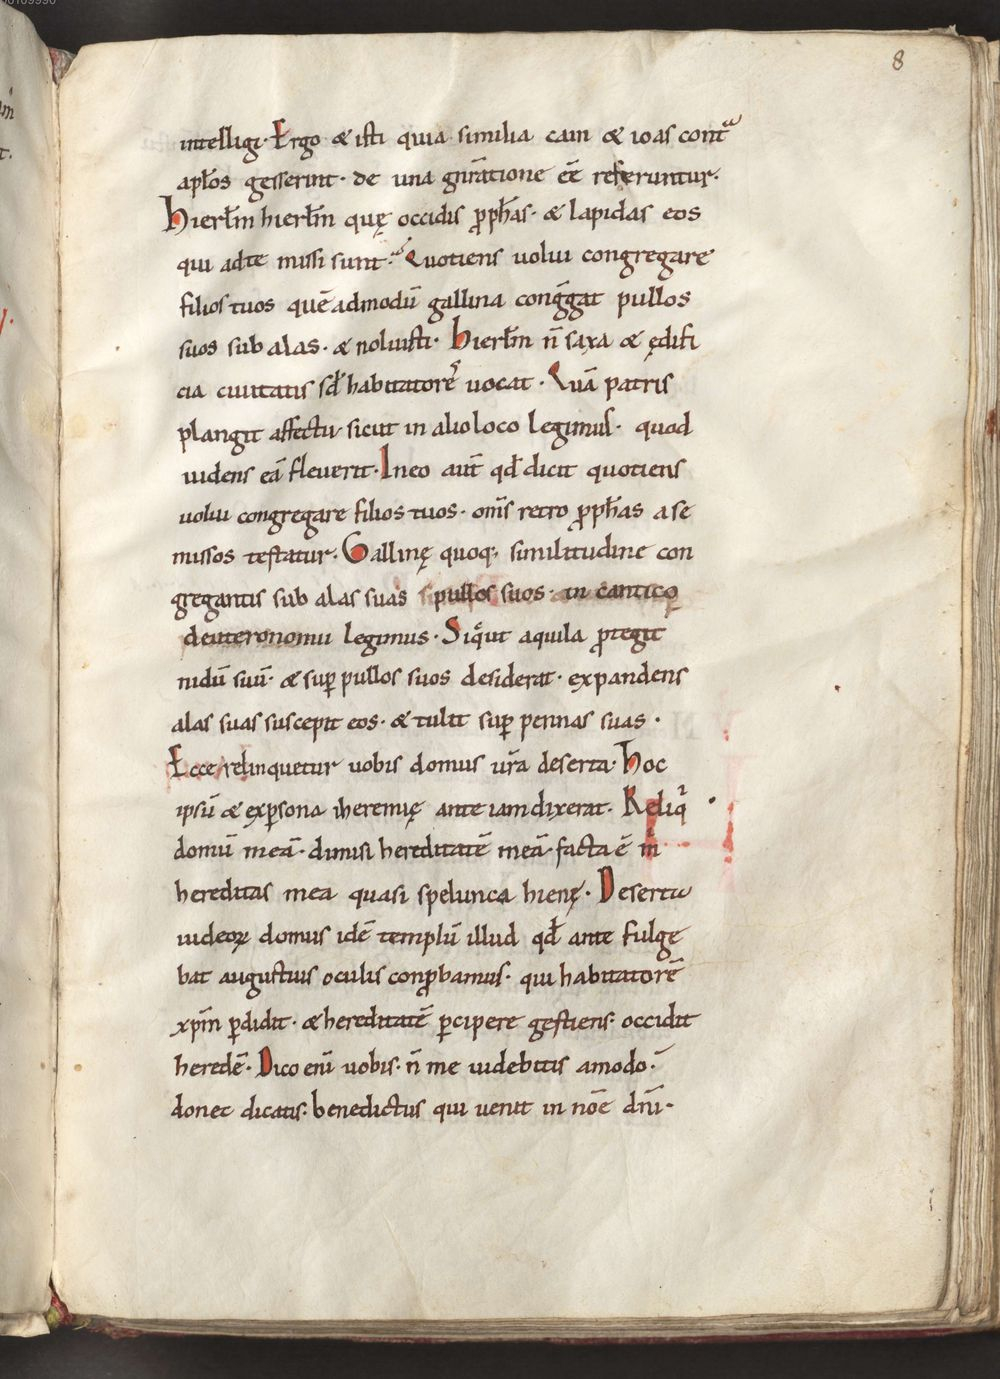 8
intelligi· Ergo & isti quia similia cain & ioas cont̃ᵃ
apl̄os gesserint· de una gn̄ratione eē̄ referuntur·
Hierl̄m hierl̄m quę occidis p̄ph̄as· & lapidas eos
qui adte missi sunt· Quotiens uolui congregare
filios tuos quēadmodū gallina cong̃gat pullos
suos sub alas· & noluisti· Hierl̄m n̄ saxa & ędifi
cia ciuitatis sꝫ habitatorē uocat· Quā patris
plangit affectu sicut in alio loco legimus· quod
uidens eā fleuerit· In eo aut̄ qd̄ dicit quotiens
uolui congregare filios tuos· om̄s retro p̄ph̄as a se
missos testatur· Gallinę quoq; similitudine con
gregantis sub alas suas pullos suos· in cantico
deuteronomii legimus· Sic̄ut aquila ꝓtegit
nidū suū· & suꝑ pullos suos desiderat· expandens
alas suas suscepit eos· & tulit suꝑ pennas suas·
Ecce relinquetur uobis domus ur̄a deserta· Hoc
ipsū & exꝑsona iheremię ante iam dixerat· Reliqⁱ
domū meā· dimisi hereditatē meā· facta ē mⁱ
hereditas mea quasi spelunca hienę· Deserta
iudeoꝝ domus idē templū illud qd̄ ante fulge
bat augustius oculis conꝓbamus· qui habitatorē
xp̄m ꝑdidit· & hereditatē ꝑcipere gestiens· occidit
heredē· Dico enī uobis· n̄ me uidebitis amodo·
donec dicatis· benedictus qui uenit in nōe dn̄i·